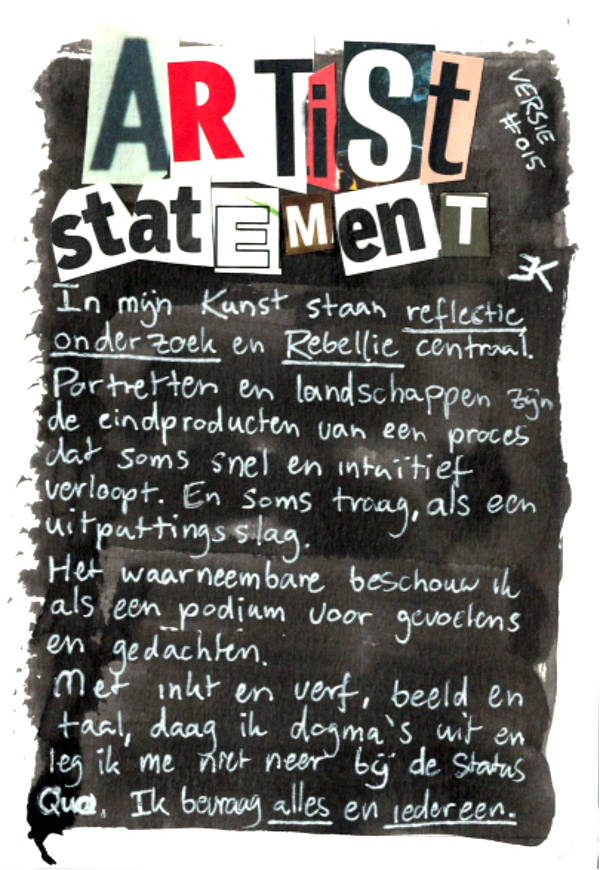 ARTiSt
statEMENT
VERSIE
#015
EK
In mijn Kunst staan reflectie,
onderzoek en Rebellie centraal.
Portretten en landschappen zijn
de eindproducten van een proces
dat soms snel en intuïtief
verloopt. En soms traag, als een
uitputtingsslag.
Het waarneembare beschouw ik
als een podium voor gevoelens
en gedachten.
Met inkt en verf, beeld en
taal, daag ik dogma's uit en
leg ik me niet neer bij de Status
Quo. Ik bevraag alles en iedereen.